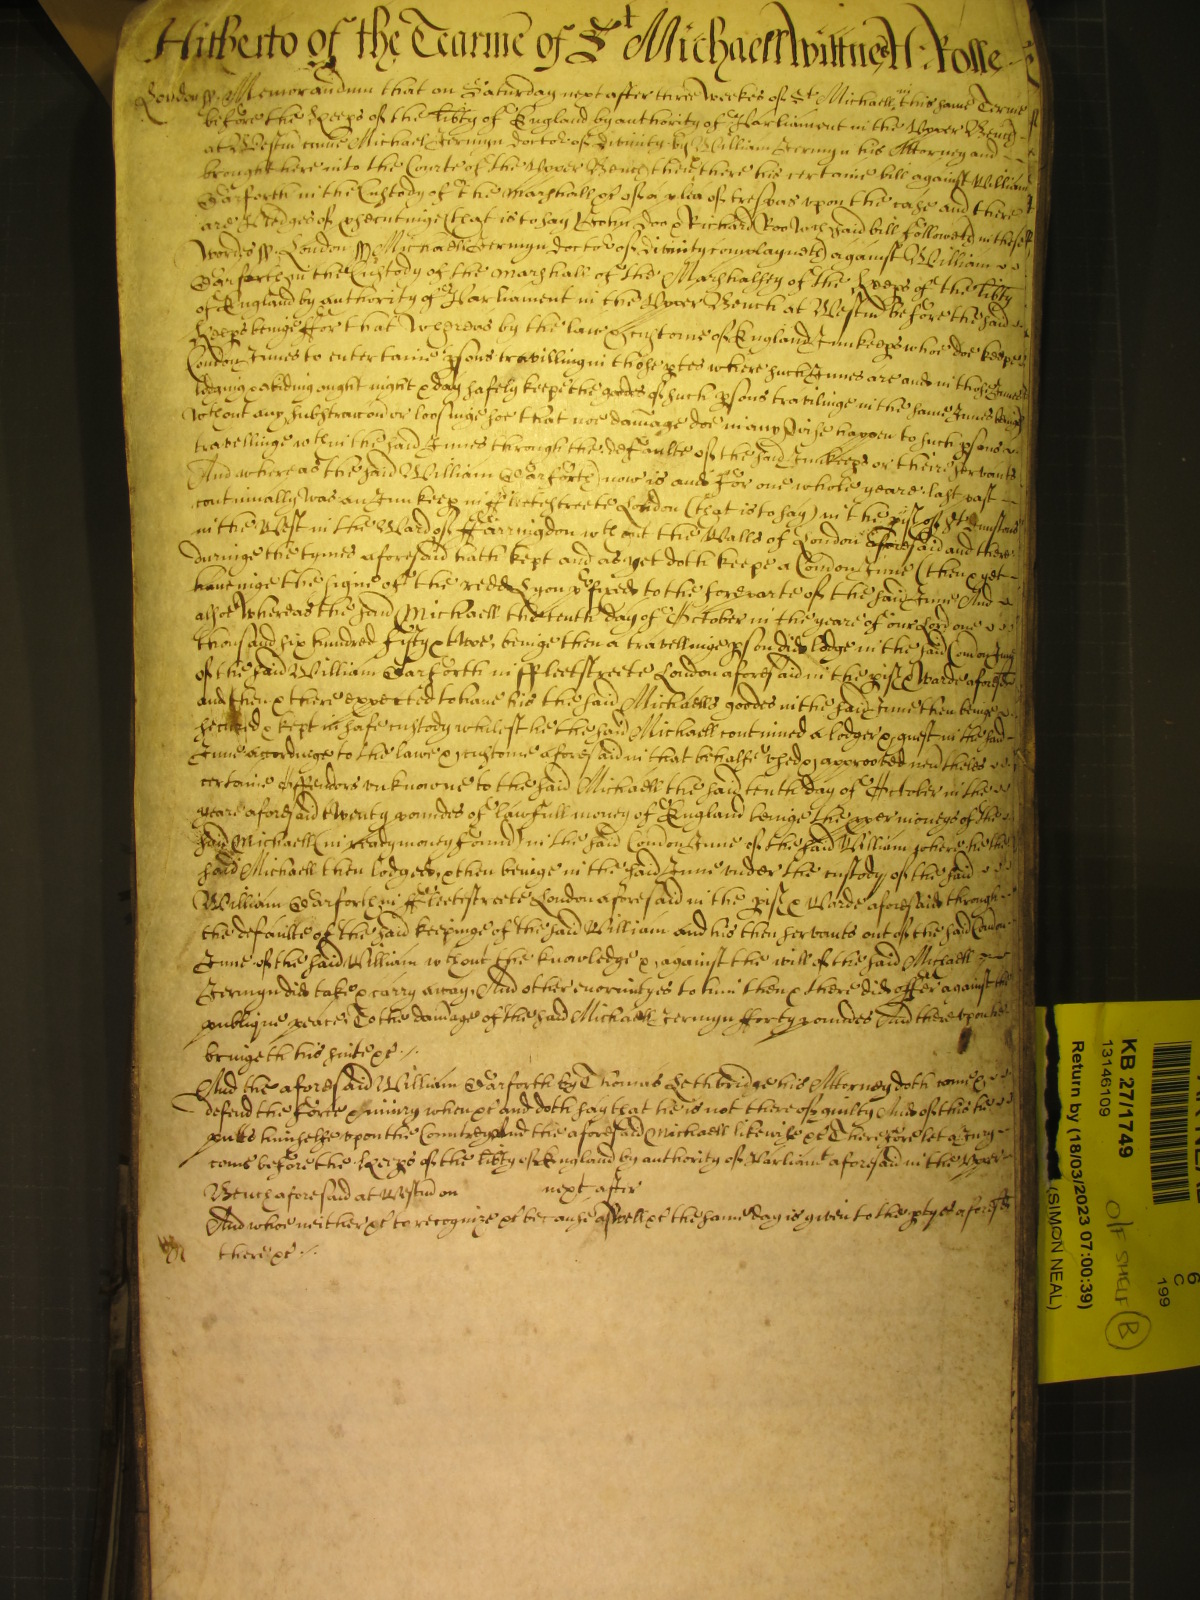 Hitherto of the Tearme of St Michaell Wittnes H: Rolle
London ss Memorandum that on Saturday next after three weekes of St Michaell this same Terme
before the Keeps of the libty of England by authority of Parliament in the Upper Bench
at Westm came Michaell Jermyn doctor of divinity by William Jermyn his Attorney and
brought here into the Courte of the Upper Bench then there his certaine bill against William
Garforth in the Custody of the Marshall &c of a plea of trespas upon the case and there
are pledges of prosecutinge (that is to say) John Doo & Richard Roo wch said bill followeth in these
words ss London ss Michaell Jermyn doctor of divinity complayneth against William
Garforth in the Custody of the Marshall of the Marshalsey of the Keeps of the libty
of England by authority of Parliament in the Upper Bench at Westm before the said
Keeps beinge ffor that Whereas by the law & custome of England Innkeeps whoe doe keepe
Comon Innes to entertaine psons travillinge in those ptes where such Innes are and in those Innes
lodging & abiding ought night & day safely keepe the goodes of such psons travilinge in the same Innes beinge
wthout any substraccon or loosinge soe that noe damage doe in any wise happen to such psons
travellinge wthin the said Innes through the defaulte of the said Innkeeps or there servants
And whereas the said William Garforth now is and for one whole yeare last past
continually was an Innkeep in ffleetestreete London (that is to say) in the pish of St Dunstans
in the West in the Ward of ffarringdon wthout the Walls of London aforesaid and there
duringe the tyme aforesaid hath kept and as yet doth keepe a Comon Inne (then & yet
haveinge the signe of the redd Lyon pfixed to the foreparte of the said Inne And
alsoe Whereas the said Michaell the tenth day of October in the yeare of our Lord one
thousand six hundred fifty & twoe beinge then a travellinge pson did lodge in the said Comon Inne
of the said William Garforth in ffleetstreete London aforesaid in the pish & Warde aforesaid
and then & there expected to have his the said Michaells goodes in the said Inne then beinge
secured & kept in safe custody whilest he the said Michaell continued a lodger & guest in the said
Inne accordinge to the lawe & custome aforesaid in that behalfe used & approoved nevertheles
certaine Offendors unknowne to the said Michaell the said tenth day of October in the
yeare aforesaid twenty poundes of lawfull money of England beinge the pper moneys of the
said Michaell (in ready money found) in the said Comon Inne of the said William where he the
said Michaell then lodged & then beinge in the said Inne under the custody of the said
William Garforth in ffleetestreete London aforesaid in the pish & Warde aforesaid through
the defaulte of the said keepinge of the said William and his then servants out of the said Comon
Inne of the said William wthout the knowledge & against the will of the said Michaell
Jermyn did take & carry away And other enormityes to him then & there did offer against the
publique peace To the damage of the said Michaell Jermyn fforty poundes And thereupon he
bringeth his suite &c
And the aforesaid William Garforth by Thomas Lethbridge his Attorney doth come &
defend the force & iniury when &c and doth say that he is not thereof guilty And of this he
putts himselfe upon the Countrey And the aforesaid Michaell likewise &c Therefore let a Jury
come before the Keeps of the libty of England by authority of Parliamt aforesaid in the Upper
Bench aforesaid at Westm on next after
And whoe neither &c to recognize &c because aswell &c the same day is given to the ptyes aforesd
there &c
KB 27/1749
13146109
Return by (18/03/2023 07:00:39)
(SIMON NEAL)
O/F SHELF B
6
C
199